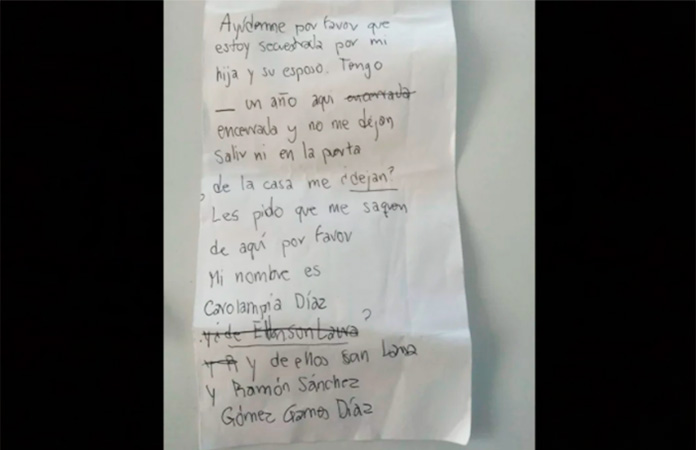 Ayúdenme por favor que
estoy secuestrada por mi
hija y su esposo. Tengo
_ un año aqui encerrada
encerrada y no me dejan
Salir ni en la puerta
, de la casa me ¿dejan?
Les pido que me saquen
de aquí por favor
Mi nombre es
Carolampia Díaz
de Ellos son Laura ?
Y y de ellos son Lana
y Ramón Sánchez
Gómez Gamos Díaz